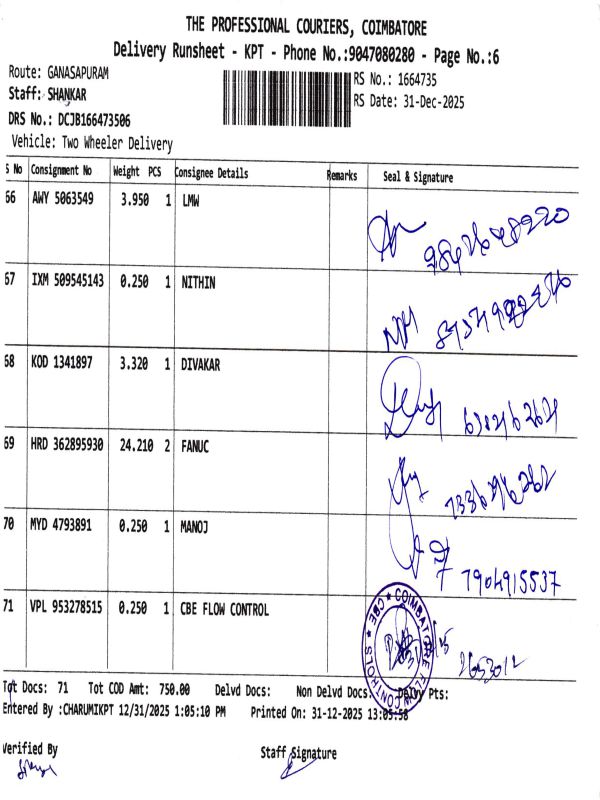 THE PROFESSIONAL COURIERS, COIMBATORE
Delivery Runsheet - KPT - Phone No.:9047080280 - Page No.:6
Route: GANASAPURAM
RS No.: 1664735
Staff: SHANKAR
RS Date: 31-Dec-2025
DRS No.: DCJB166473506
Vehicle: Two Wheeler Delivery
S No Consignment No Weight PCS Consignee Details Remarks Seal & Signature
66 AWY 5063549 3.950 1 LMW
67 IXM 509545143 0.250 1 NITHIN
68 KOD 1341897 3.320 1 DIVAKAR
69 HRD 362895930 24.210 2 FANUC
70 MYD 4793891 0.250 1 MANOJ
7904915537
71 VPL 953278515 0.250 1 CBE FLOW CONTROL
CBE FLOW CONTROLS ★ COIMBATORE ★
Tot Docs: 71 Tot COD Amt: 750.00 Delvd Docs: Non Delvd Docs: Delvy Pts:
Entered By :CHARUMIKPT 12/31/2025 1:05:10 PM Printed On: 31-12-2025 13:05:58
Verified By Staff Signature